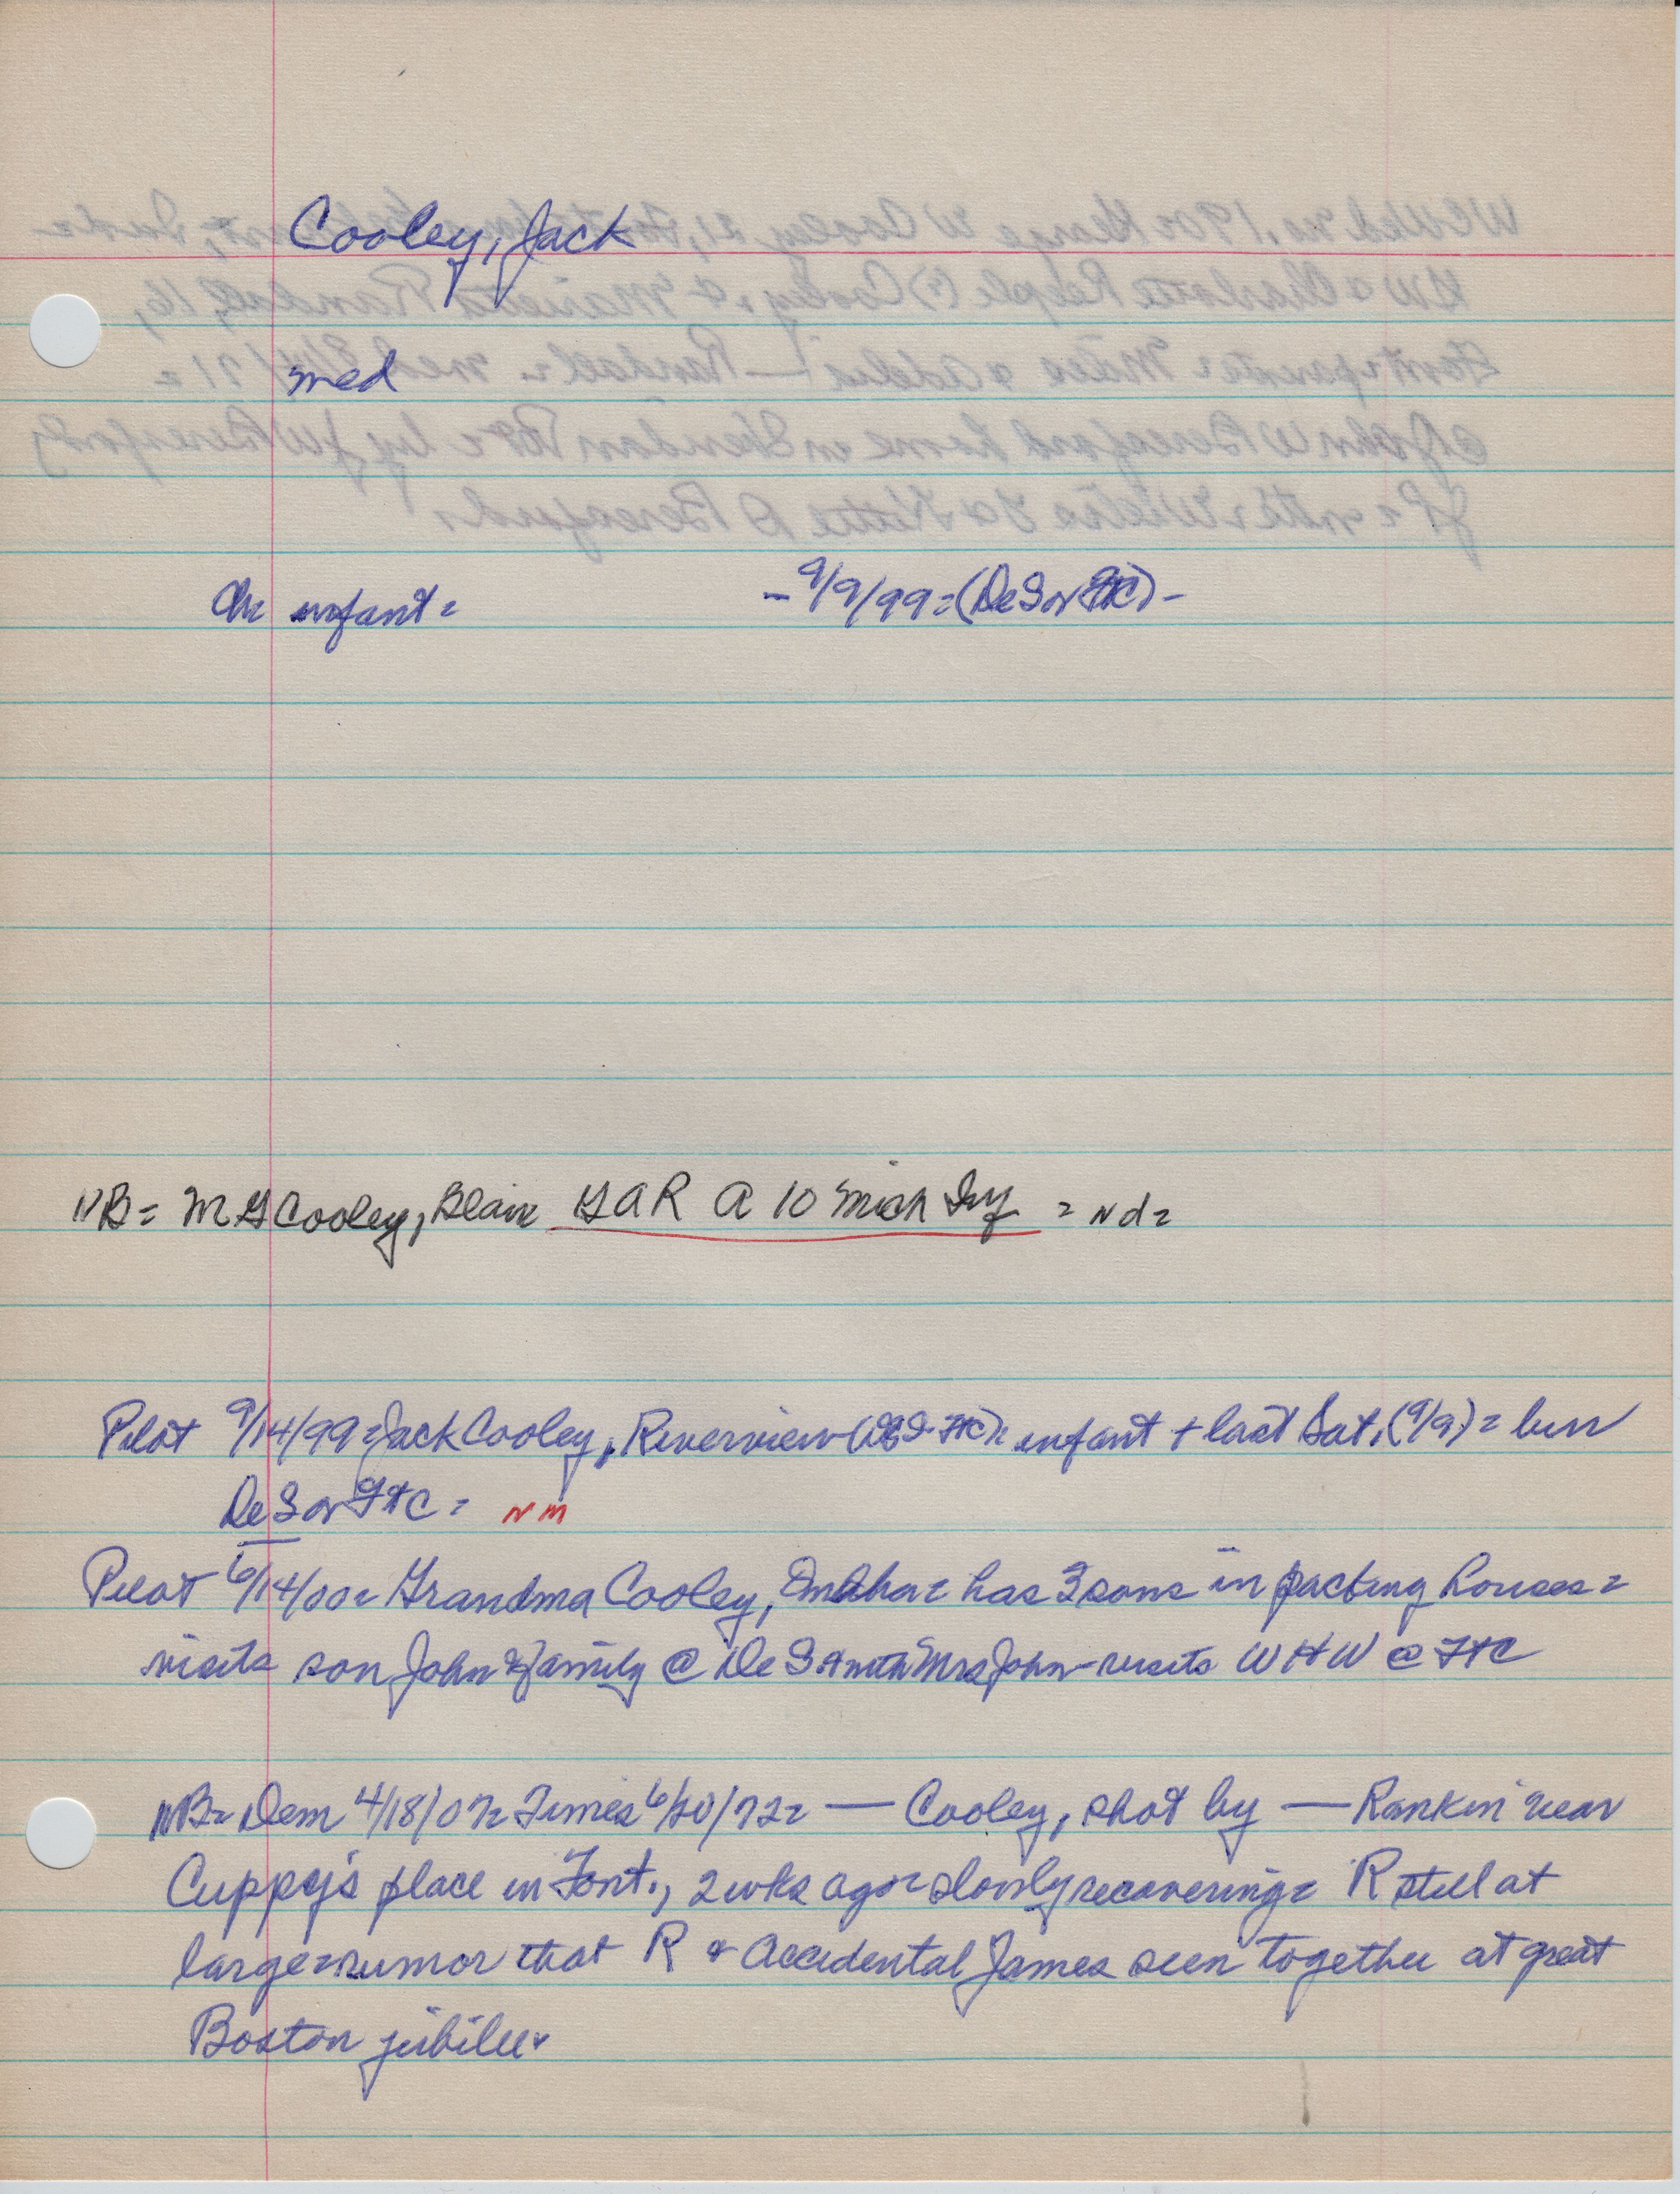 Cooley, Jack
med
Ch infant =
- 9/9/99 = (DeS or FtC) -
NB = M G Cooley, Blair GAR A 10 Mich Inf = nd =
Pilot 9/14/99 = Jack Cooley, Riverview (DeS-FtC) = infant + last Sat. (9/9) = bur
DeS or FtC = NM
Pilot 6/14/00 = Grandma Cooley, Omaha = has 3 sons in packing houses =
visits son John & family @ DeS & with Mrs John - visits W H W @ FtC
NB = Dem 4/18/07 = Times 6/20/72 = — Cooley, shot by — Rankin near
Cuppy's place in Font., 2 wks ago = slowly recovering = R still at
large = rumor that R & Accidental James seen together at great
Boston jubilee.